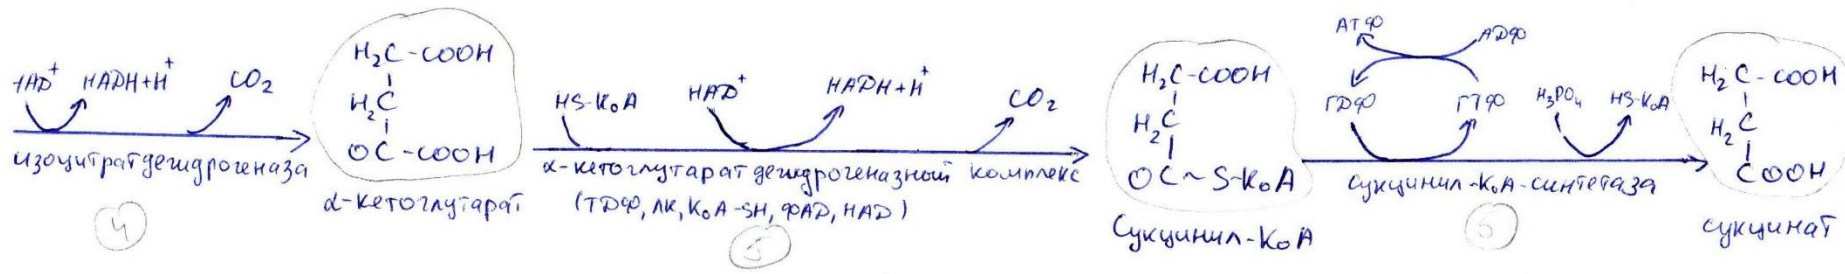 НАD⁺ НАDН+Н⁺ CO₂
изоцитратдегидрогеназа
4
H₂C-COOH
H₂C
OC-COOH
α-кетоглутарат
HS-KoA НАD⁺ НАDН+Н⁺ CO₂
α-кетоглутаратдегидрогеназный комплекс
(ТДФ, ЛК, KoA-SH, ФАD, НАD)
5
H₂C-COOH
H₂C
OC~S-KoA
Сукцинил-KoA
АТФ АДФ
ГДФ ГТФ H₃PO₄ HS-KoA
сукцинил-KoA-синтетаза
6
H₂C-COOH
H₂C
COOH
сукцинат